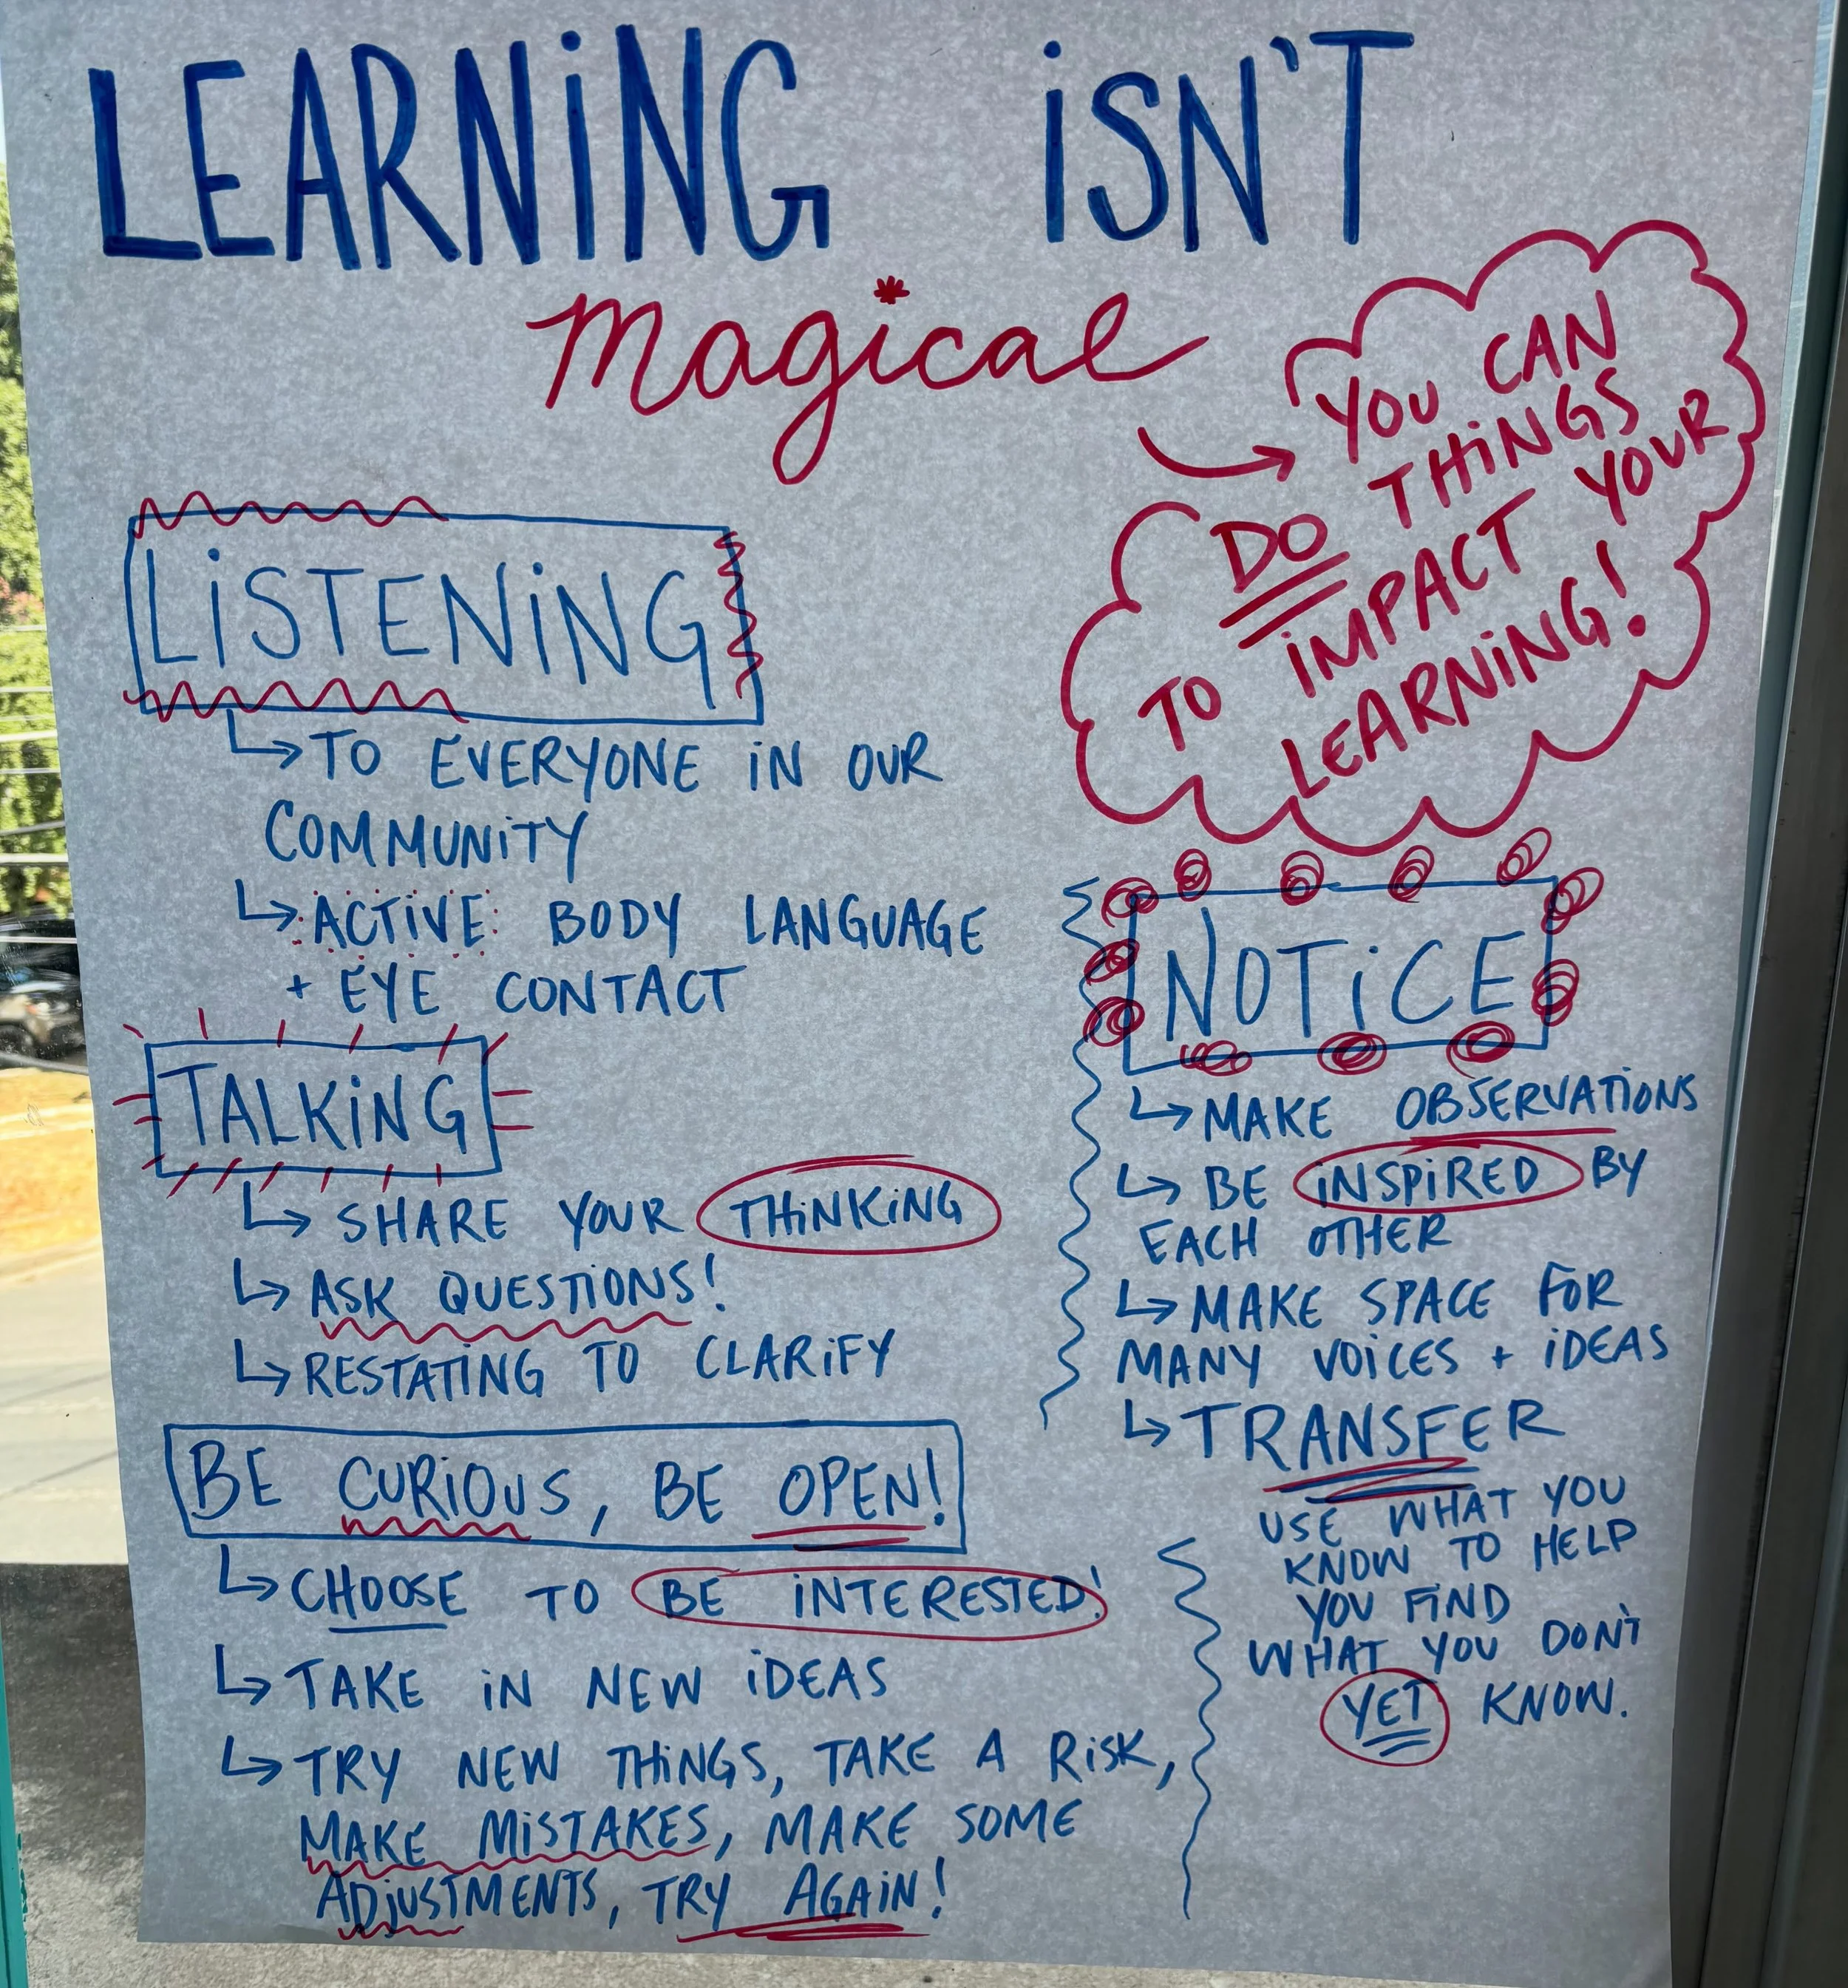 LEARNiNG iSN'T
magical
→ YOU CAN
DO THiNGS
TO iMPACT YOUR
LEARNiNG!
LiSTENiNG
↳ TO EVERYONE iN OUR
COMMUNiTY
↳ ACTiVE BODY LANGUAGE
+ EYE CONTACT
TALKiNG
↳ SHARE YOUR THiNKiNG
↳ ASK QUESTiONS!
↳ RESTATiNG TO CLARiFY
BE CURiOUS, BE OPEN!
↳ CHOOSE TO BE iNTERESTED!
↳ TAKE iN NEW iDEAS
↳ TRY NEW THiNGS, TAKE A RiSK,
MAKE MiSTAKES, MAKE SOME
ADjUSTMENTS, TRY AGAiN!
NOTiCE
↳ MAKE OBSERVATiONS
↳ BE iNSPiRED BY
EACH OTHER
↳ MAKE SPACE FOR
MANY VOiCES + iDEAS
↳ TRANSFER
USE WHAT YOU
KNOW TO HELP
YOU FiND
WHAT YOU DON'T
YET KNOW.